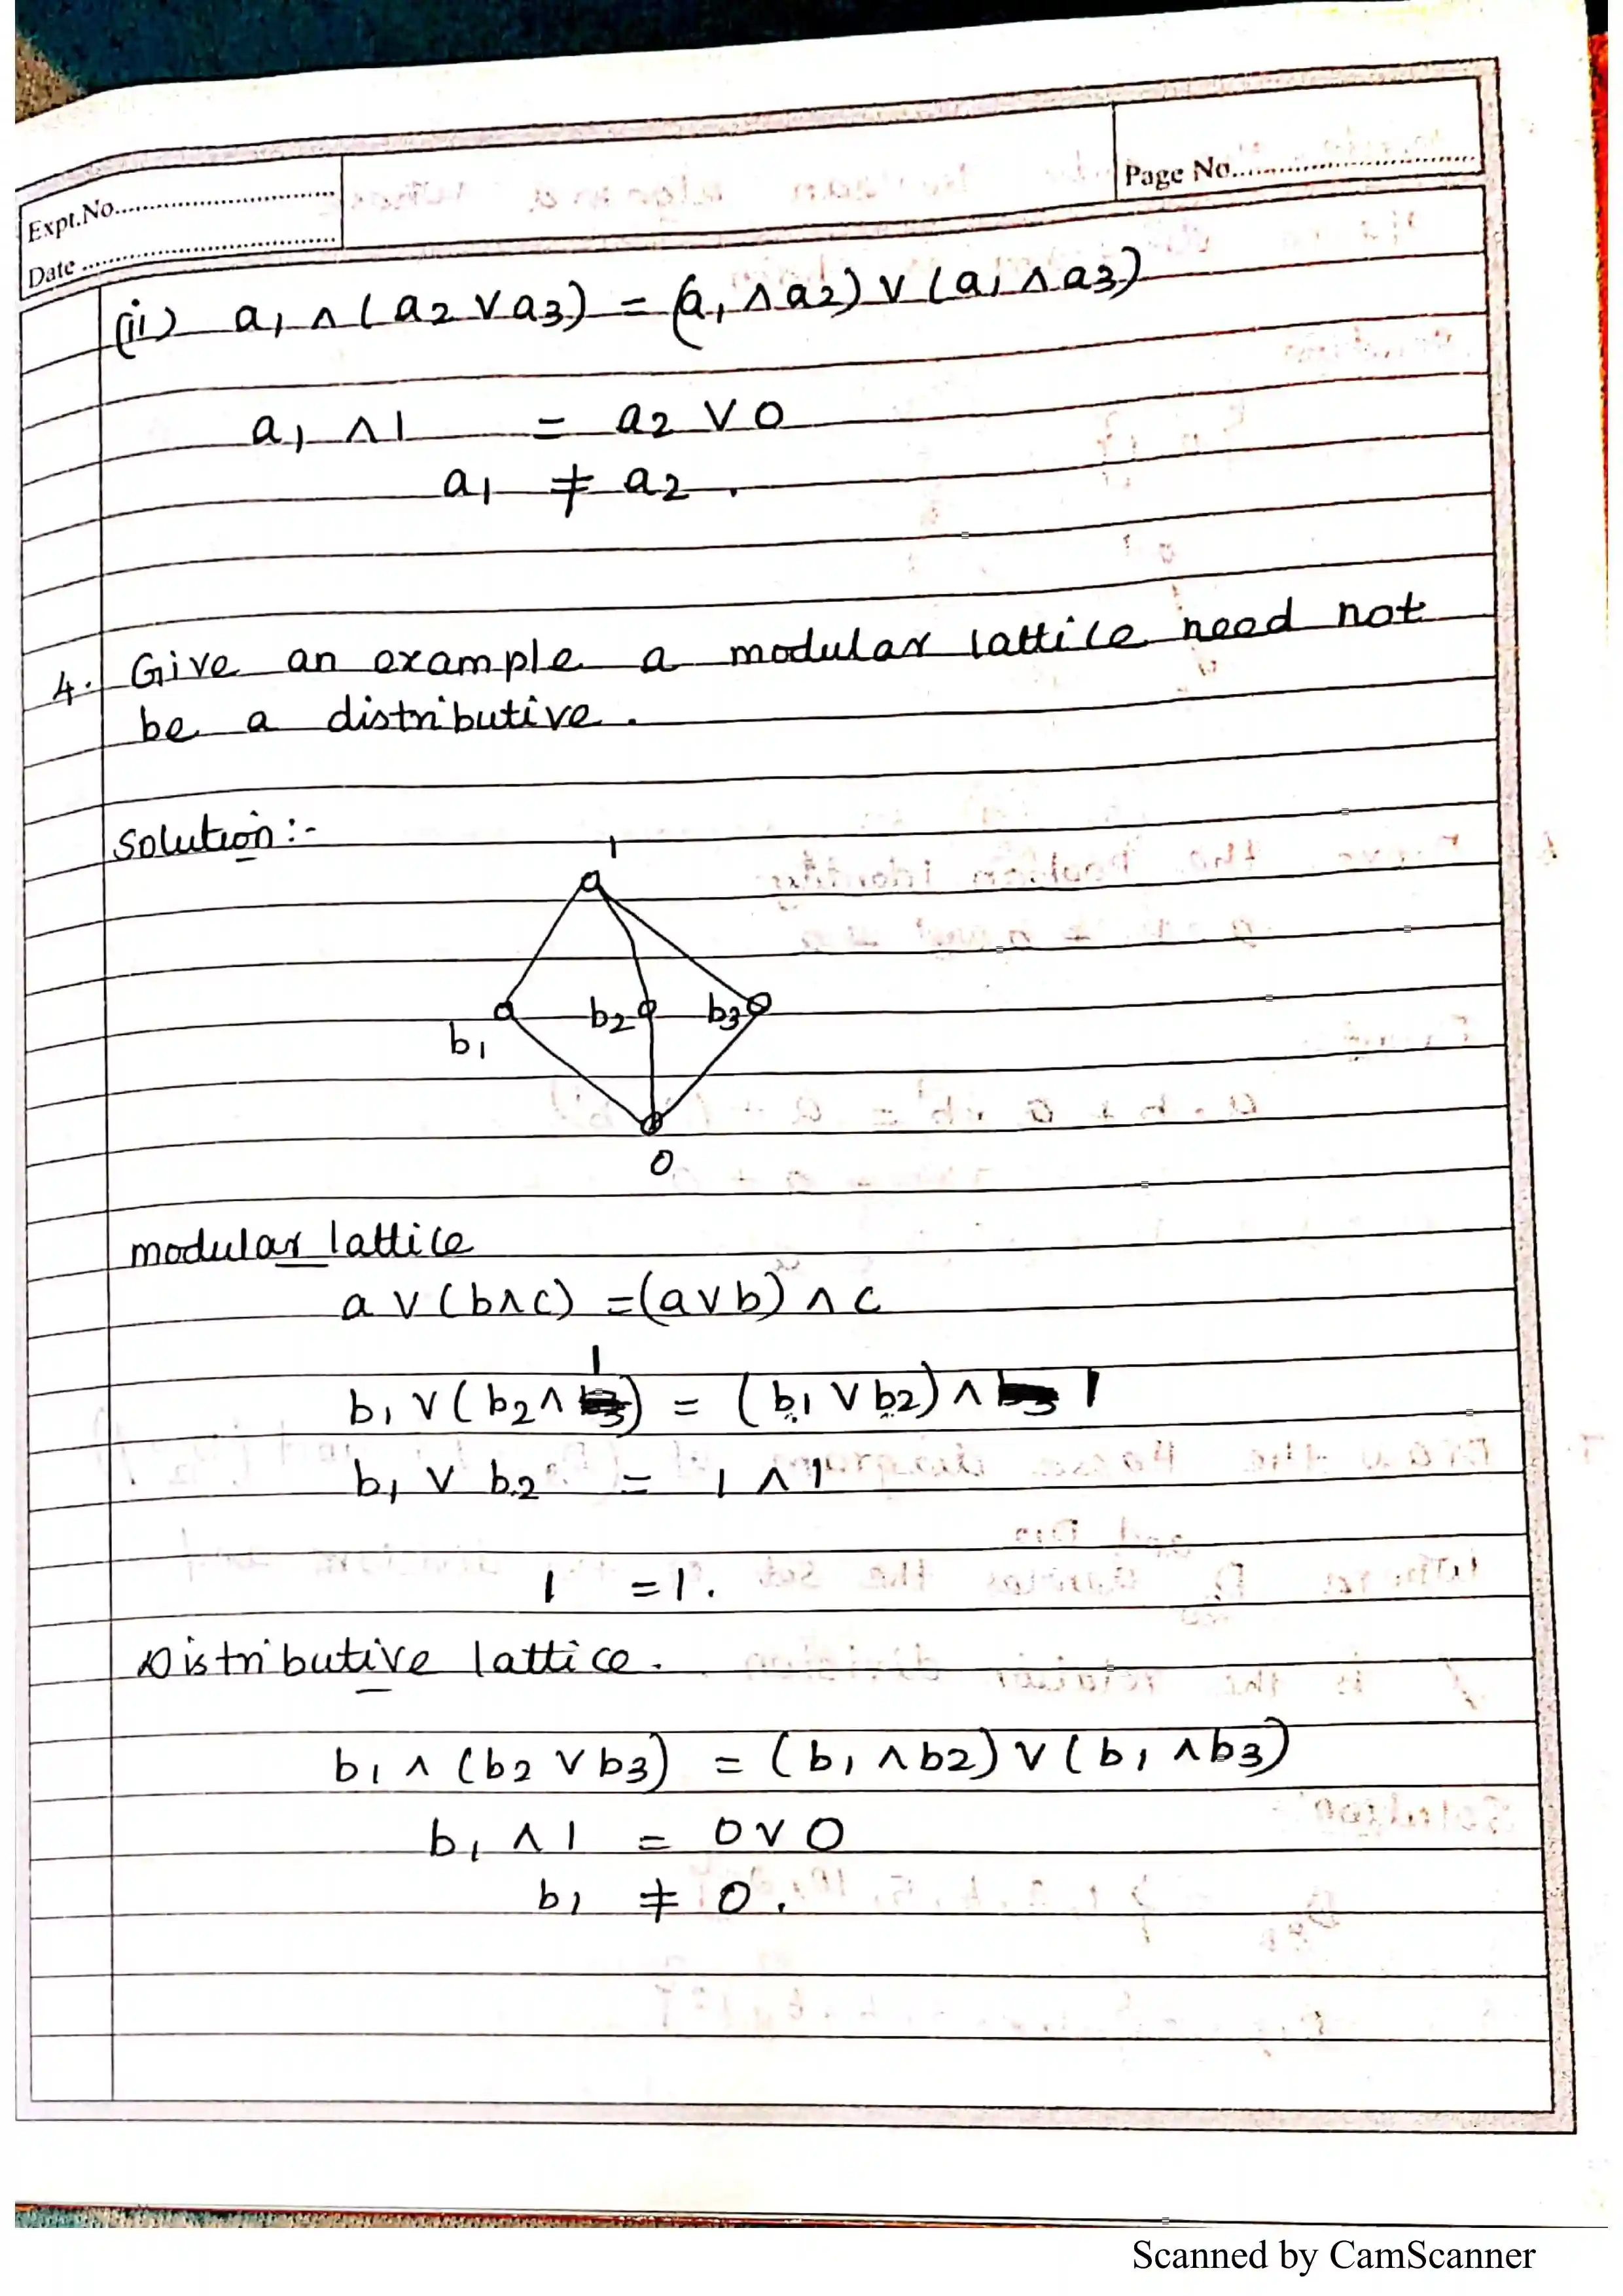 Expt.No.
Page No.
Date
(ii) a1 ∧ (a2 ∨ a3) = (a1 ∧ a2) ∨ (a1 ∧ a3)
a1 ∧ 1 = a2 ∨ 0
a1 ≠ a2.
4. Give an example a modular lattice need not
be a distributive.
Solution:-
1
b1 b2 b3
0
modular lattice
a ∨ (b ∧ c) = (a ∨ b) ∧ c
b1 ∨ (b2 ∧ 1) = (b1 ∨ b2) ∧ 1
b1 ∨ b2 = 1 ∧ 1
1 = 1.
Distributive lattice.
b1 ∧ (b2 ∨ b3) = (b1 ∧ b2) ∨ (b1 ∧ b3)
b1 ∧ 1 = 0 ∨ 0
b1 ≠ 0.
Scanned by CamScanner